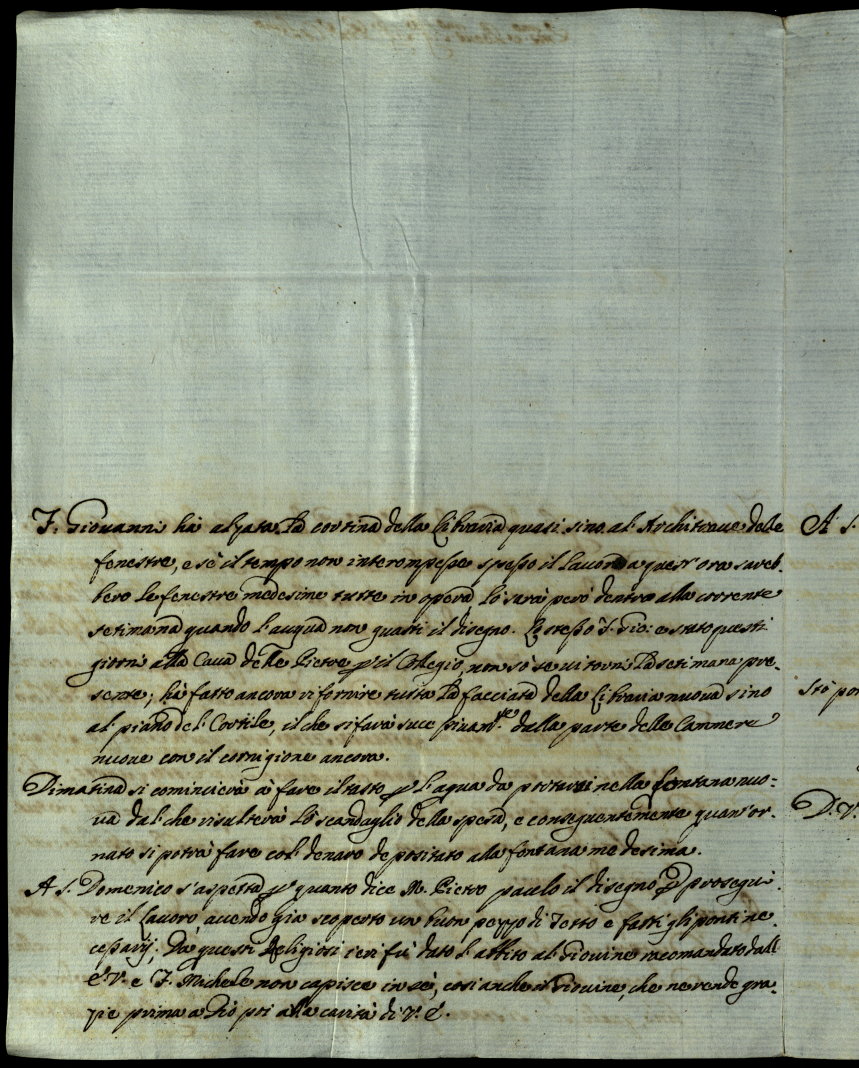 F. Giovanni hà alzata la cortina della Libraria quasi sino al Architrave delle
fenestre, e sè il tempo non interompesse spesso il Lavoro a quest'ora sareb-
bero le fenestre medesime tutte in opera lo sarà però dentro alla corrente
setimana quando l'acqua non guasti il disegno. Lo stesso F. Gio: è stato questi
giorni alla Cava delle Pietre per il Collegio non sò se vi torni la setimana pre-
sente; hà fatto ancora rifornire tutta la facciata della Libraria nuova sino
al piano del Cortile, il che si farà sucessivam.te dalla parte delle Cammere
nuove con il cornigione ancora.
Dimatina si comincierà à fare il tasto per l'aqua da portarsi nella fontana nuo-
va dal che risulterà lo scandaglio della spesa, e conseguentemente quant'or-
nato si potrà fare col denaro depositato alla fontana medesima.
A S. Domenico s'aspetta per quanto dice M. Pietro paulo il disegno per prosegui-
re il Lavoro, avendo già scoperto un buon pezzo di Tetto e fatti gli ponti ne-
cessarij; Da questi Religiosi ieri fù dato l'abito al Giovine racomandato dall
E. V. e F. Michele non capisce in sè, così anche il Giovine, che ne rende gra-
zie prima a Dio poi alla carità di V. E.
A S.
Stò por
D. V.